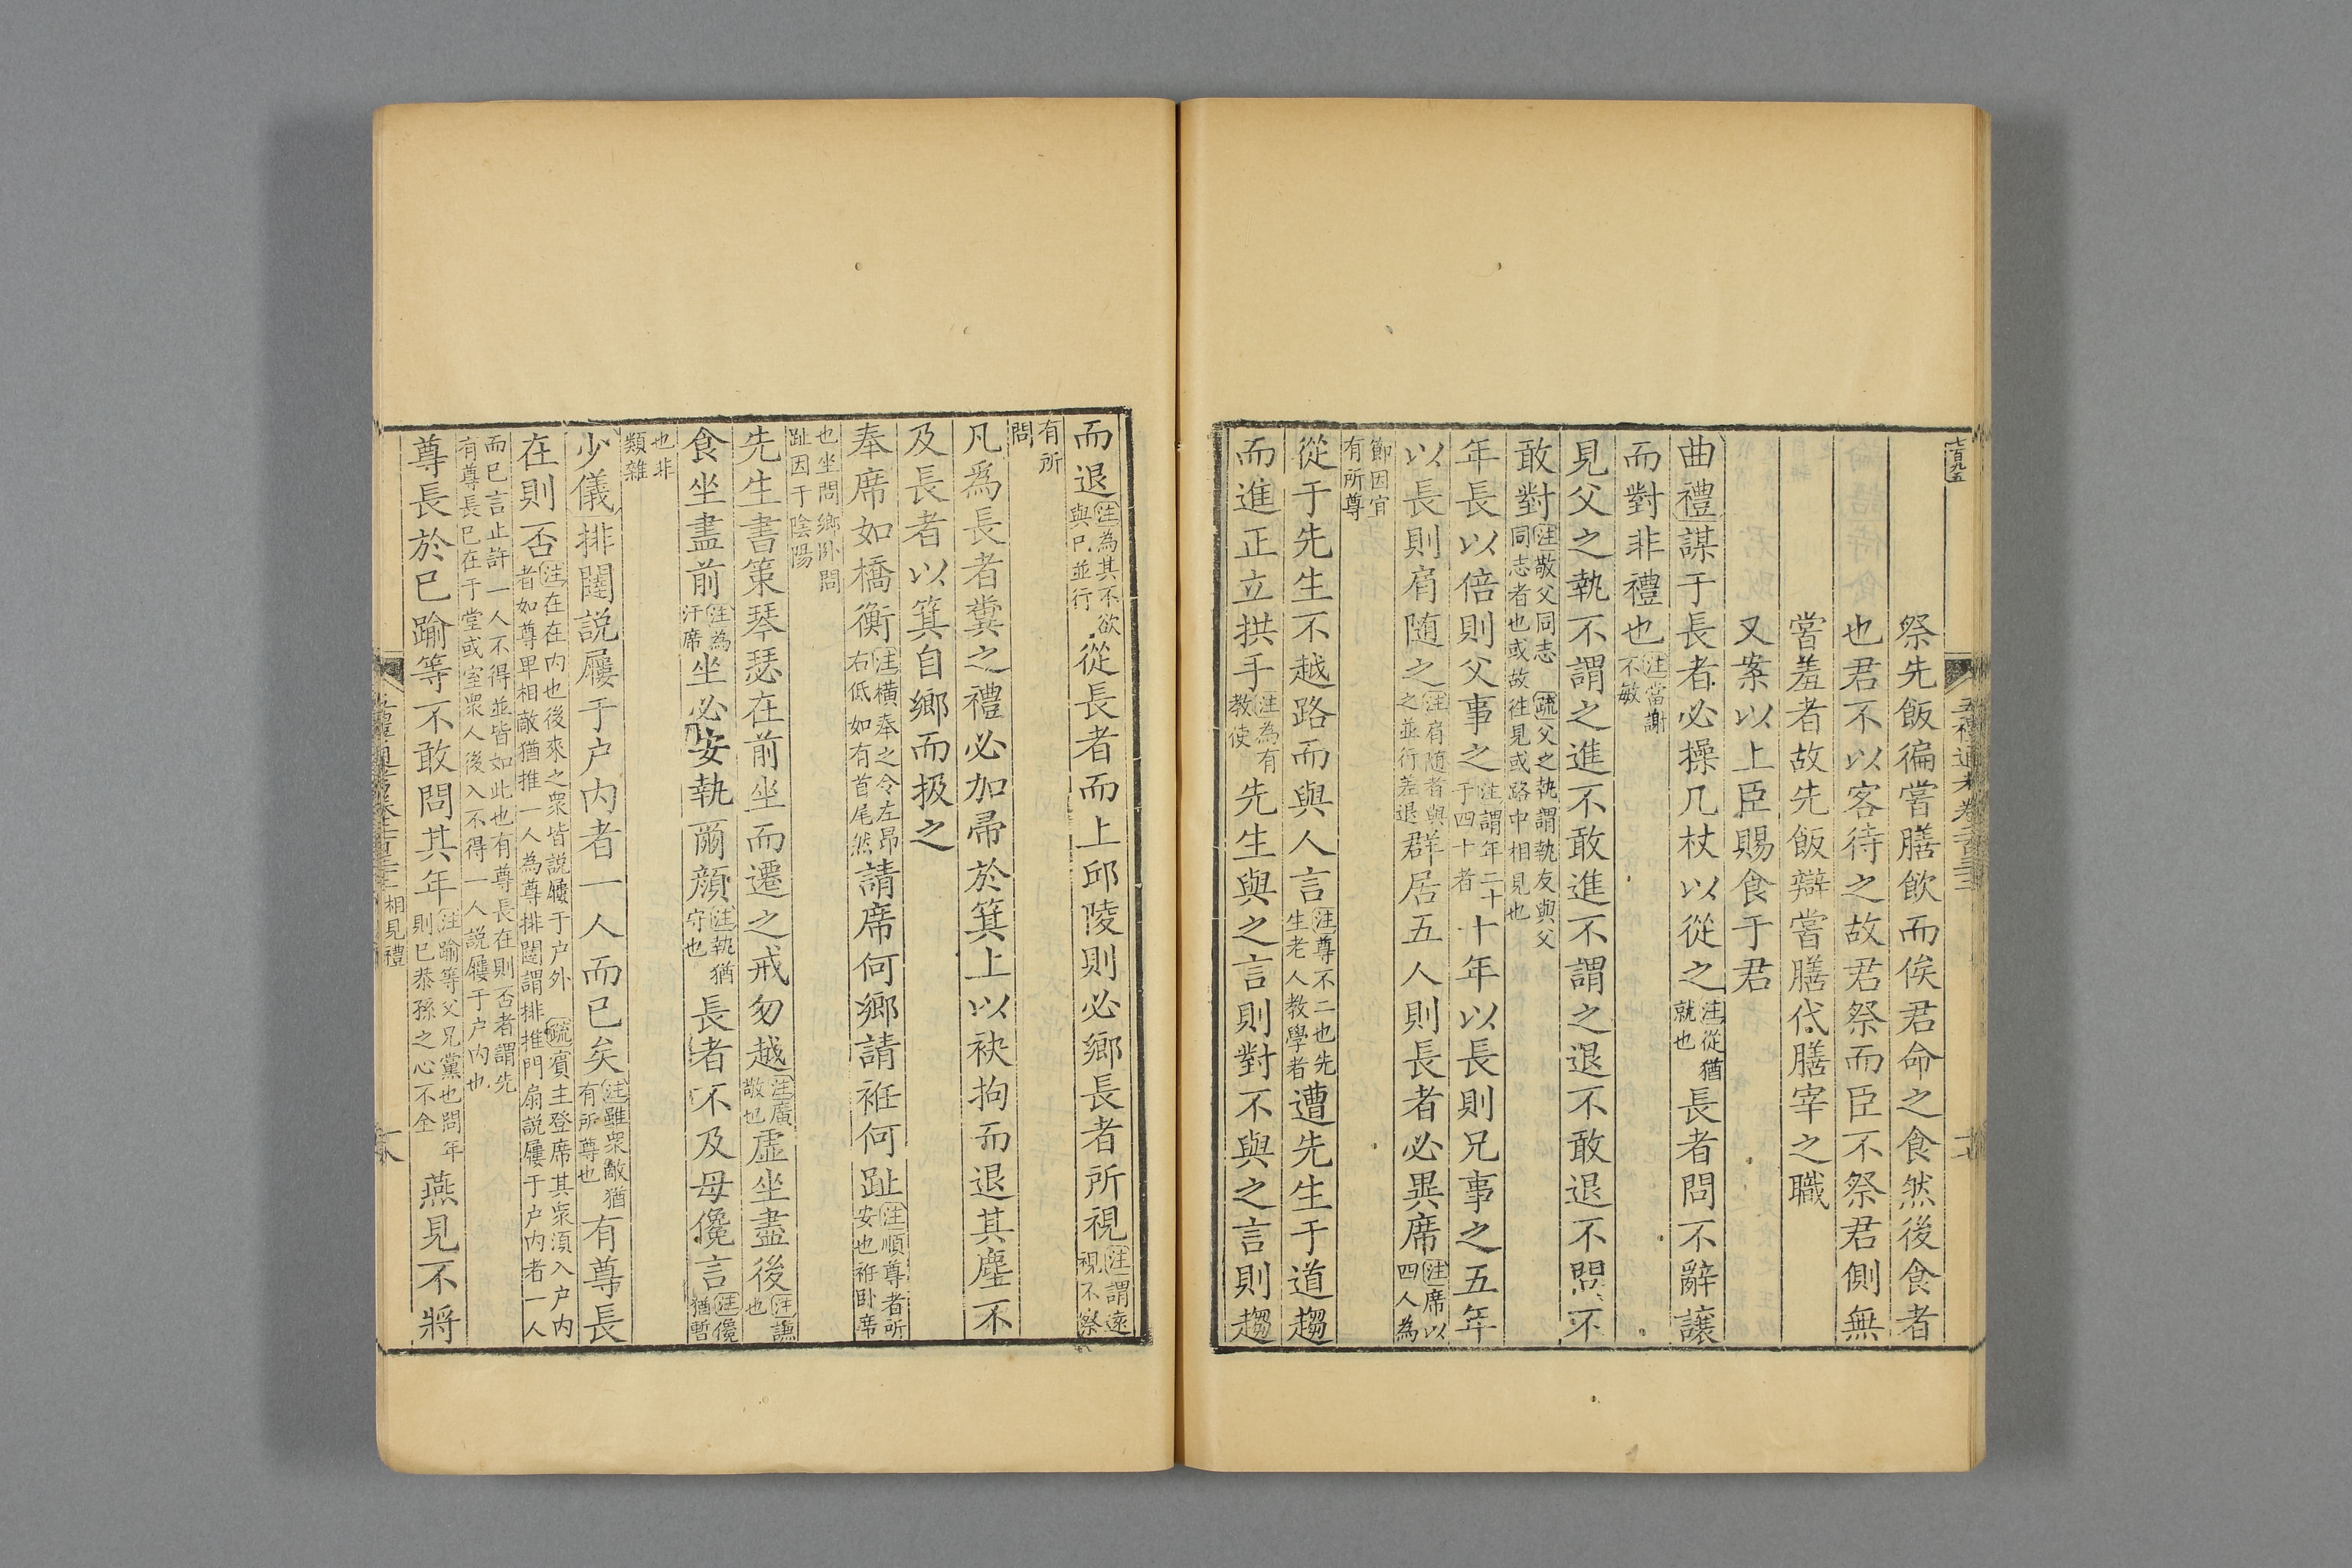 七百九五
五禮通考卷二百三十二
祭先飯徧嘗膳飲而俟君命之食然後食者
也君不以客待之故君祭而臣不祭君側無
嘗羞者故先飯辯嘗膳代膳宰之職
又案以上臣賜食于君
曲禮謀于長者必操几杖以從之注從猶就也長者問不辭讓
而對非禮也注當謝不敏
見父之執不謂之進不敢進不謂之退不敢退不問不
敢對注敬父同志疏父之執謂執友與父同志者也或故往見或路中相見也
年長以倍則父事之注謂年二十于四十者十年以長則兄事之五年
以長則肩随之注肩随者與之並行差退群居五人則長者必異席注席以四人為
節因宜有所尊
從于先生不越路而與人言注尊不二也先生老人教學者遭先生于道趨
而進正立拱手注為有教使先生與之言則對不與之言則趨
而退注為其不欲與己並行從長者而上邱陵則必鄉長者所視注謂遠視不察
有所問
凡爲長者糞之禮必加帚於箕上以袂拘而退其塵不
及長者以箕自鄉而扱之
奉席如橋衡注橫奉之令左昂右低如有首尾然請席何鄉請衽何趾注順尊者所安也衽卧席
也坐問鄉卧問趾因于陰陽
先生書策琴瑟在前坐而遷之戒勿越注廣敬也虛坐盡後注謙也
食坐盡前注為汙席坐必安執爾顔注執猶守也長者不及毋儳言注儳猶暫
也非類雜
少儀排闔説屨于户内者一人而已矣注雖衆敵猶有所尊也有尊長
在則否注在在内也後來之衆皆説屨于户外疏賓主登席其衆須入户内者如尊卑相敵猶推一人為尊排闔謂排推門扇説屨于户内者一人
而已言止許一人不得並皆如此也有尊長在則否者謂先有尊長已在于堂或室衆人後入不得一人説屨于户内也
尊長於已踰等不敢問其年注踰等父兄黨也問年則已恭孫之心不全燕見不將
相見禮